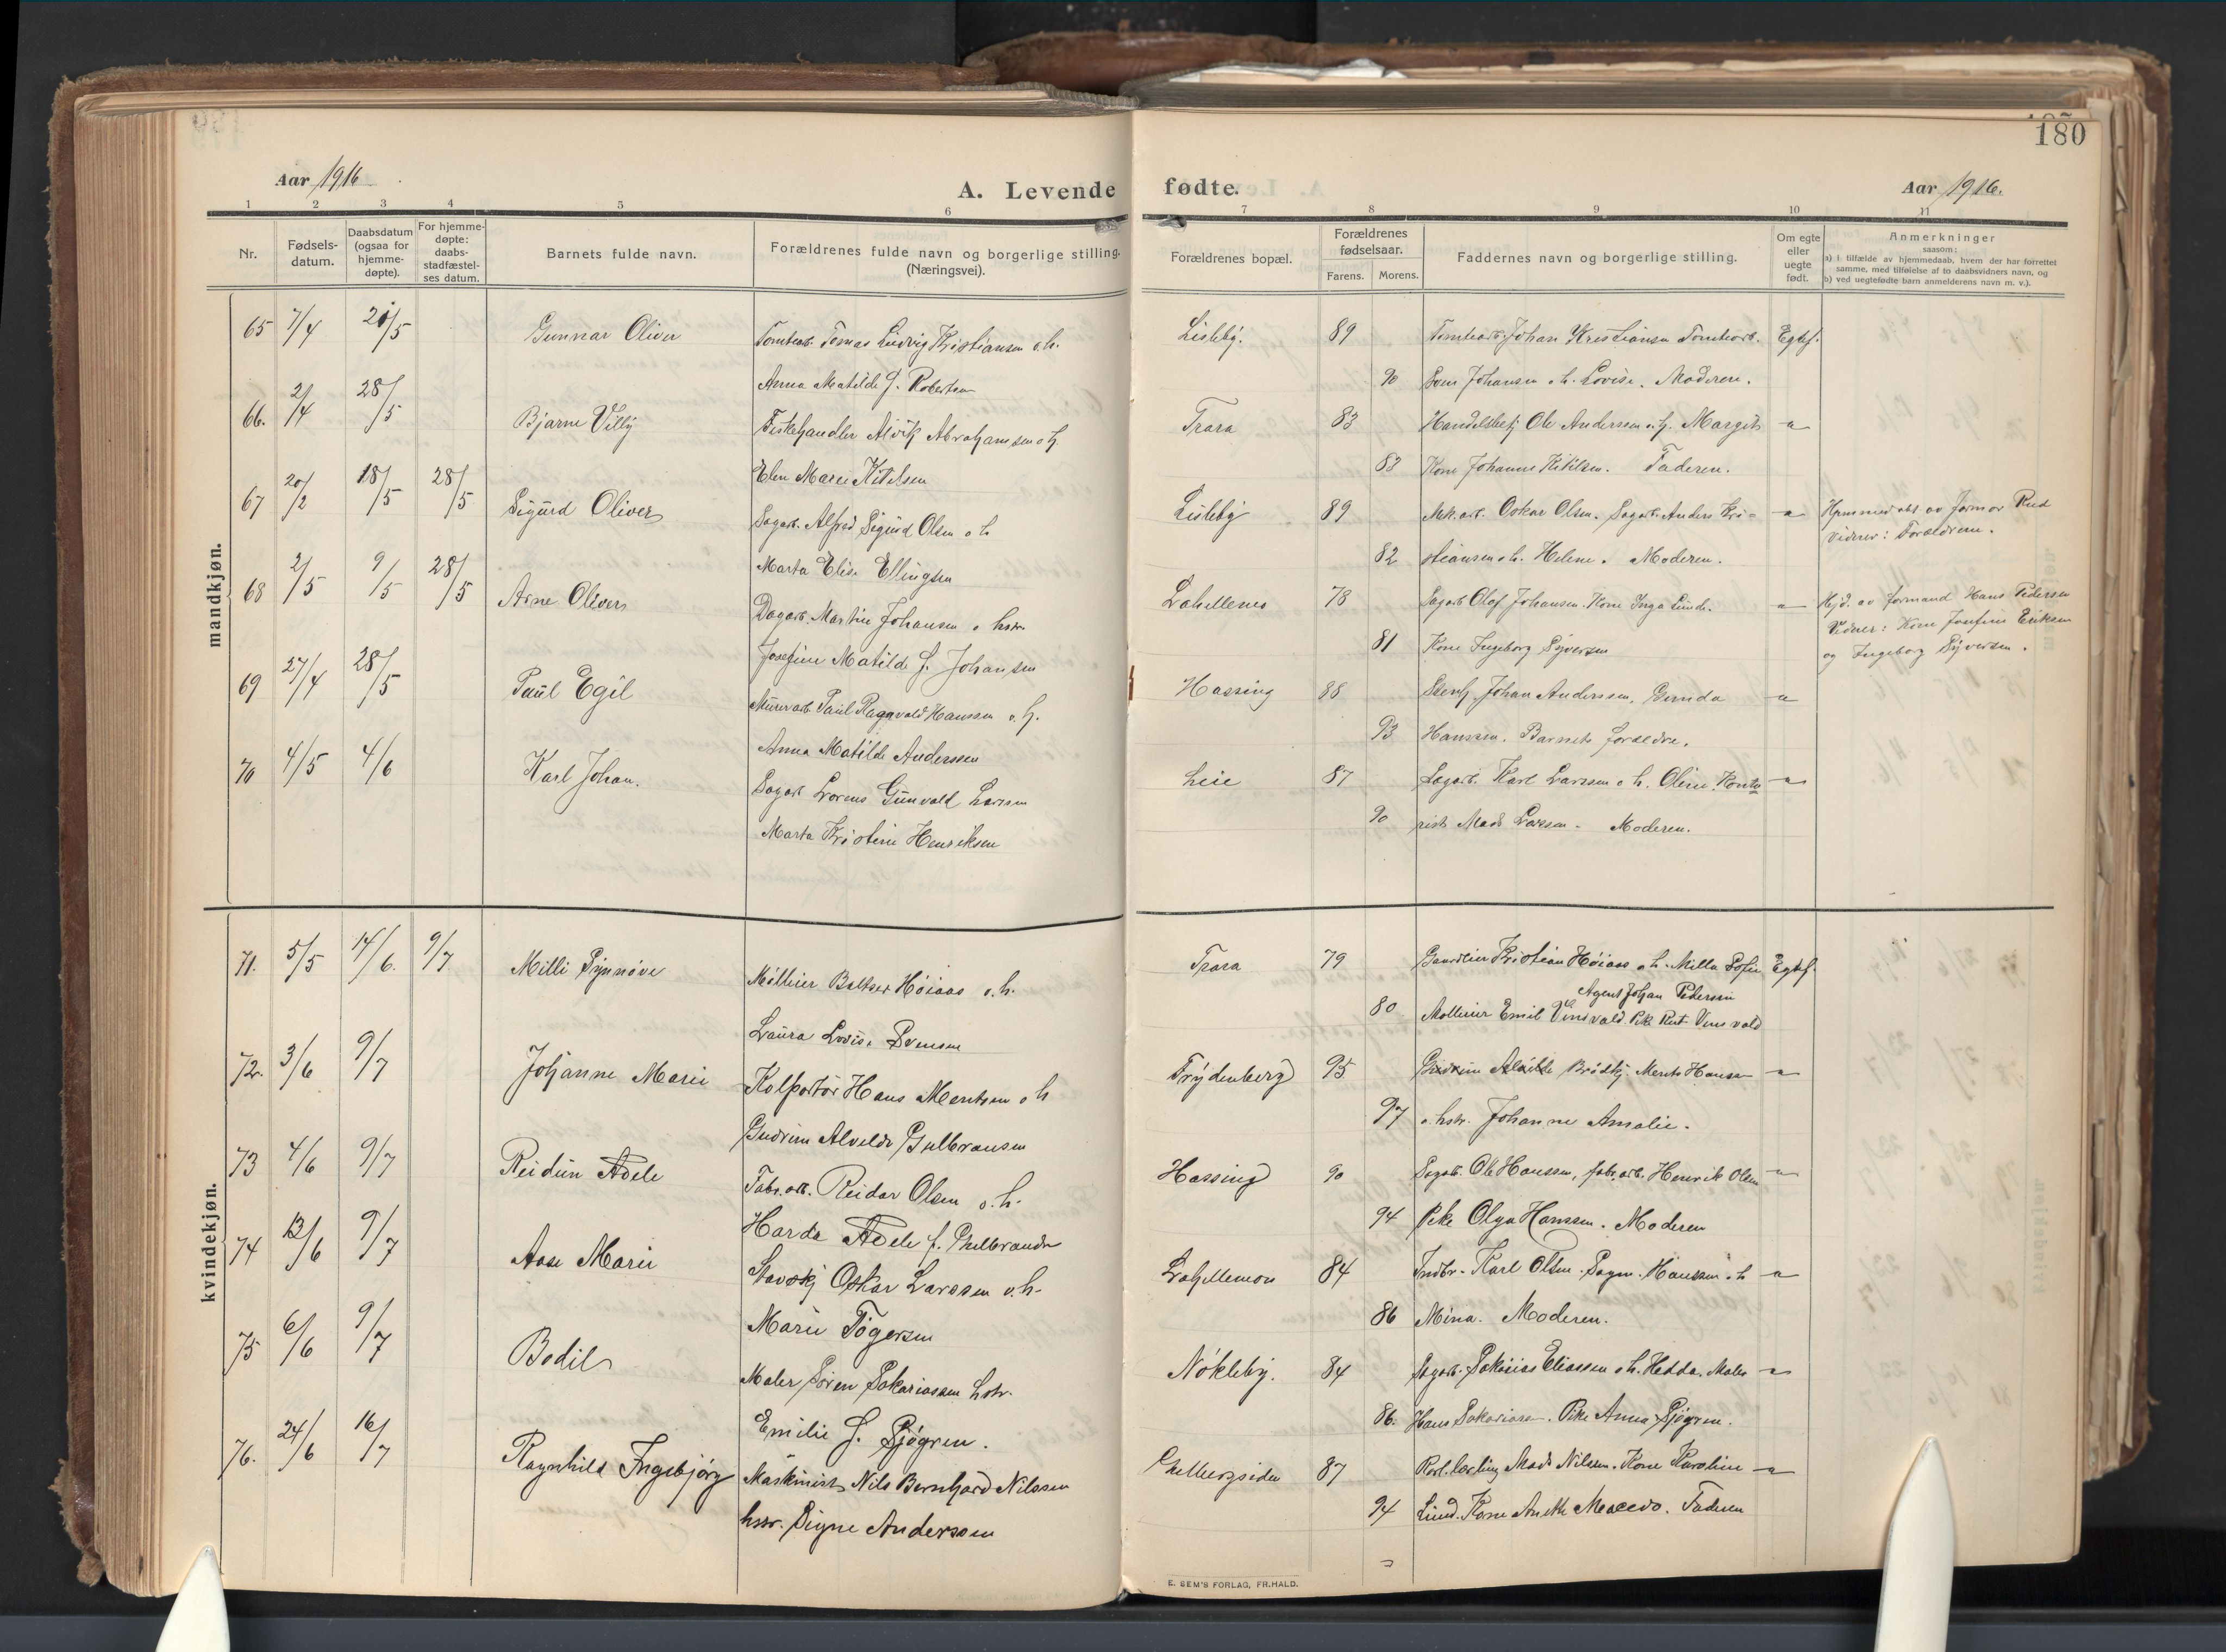 180
Aar 1916
A. Levende fødte.
Aar 1916.
1 2 3 4 5 6 7 8 9 10 11
Nr.
Fødsels-
datum.
Daabsdatum
(ogsaa for
hjemme-
døpte).
For hjemme-
døpte:
daabs-
stadfæstel-
ses datum.
Barnets fulde navn.
Forældrenes fulde navn og borgerlige stilling.
(Næringsvei).
Forældrenes bopæl.
Forældrenes
fødselsaar.
Farens. Morens.
Faddernes navn og borgerlige stilling.
Om egte
eller
uegte
født.
Anmerkninger
saasom:
a) i tilfælde av hjemmedaab, hvem der har forrettet
samme, med tilføielse af to daabsvidners navn, og
b) ved uegtefødte barn anmelderens navn m. v.).
mandkjøn.
65 7/4 21/5 Gunnar Oliver Tomtearb. Tomas Ludvig Kristiansen o. h. Lisleby. 89 Tomtearb. Johan Kristiansen Tomtearb. Egtef.
Anna Matilde f. Robertsen 90 Johansen o. h. Lovise. Moderen.
66. 2/4 28/5 Bjarne Villy Fiskehandler Alvik Abrahamsen o. h. Trara 83 Handelsbetj. Ole Anderssen o. h. Margit -"-
Elen Marie Kitilsen 83 Kone Johanne Kitilsen. Faderen.
67 20/2 18/5 28/5 Sigurd Oliver Sagarb. Alfred Sigurd Olsen o h Lisleby 89 Mek. arb. Oskar Olsen. Sagarb. Anders Kri= -"- Hjemmedøbt av Jormor Rud
Marta Elise Ellingsen 82 stiansen o. h. Helene. Moderen. Vidner: Forældrene.
68 2/5 9/5 28/5 Arne Oliver Dagarb. Martin Johansen o hstr. Lahellenes 78 Sagarb. Olof Johansen. Kone Inga Lunde. -"- Hjd. av formand Hans Pedersen
Josefine Matilde f. Johansen 81 Kone Ingeborg Syversen Vidner: Kone Josefine Eriksen
og Ingeborg Syversen.
69 27/4 28/5 Paul Egil Murerarb. Paul Ragnvald Hanssen o. h. Hassing 88 Stenh. Johan Anderssen, Gunda -"-
Anna Matilde Anderssen 93 Hanssen. Barnets forældre.
70 4/5 4/6 Karl Johan. Sagarb Lorens Gunvald Larssen Leie 87 Sagarb. Karl Larssen o h. Oline. Konto= -"-
Marta Kristine Henriksen 90 rist Mads Larssen. Moderen.
kvindekjøn.
71. 5/5 14/6. 9/7 Milli Synnøve Mølleier Baltser Høiaas o. h. Trara 79 Gaardeier Kristian Høiaas o h. Milla Sofie Egtef.
Agent Johan Pedersen
Laura Lovise Svensen 80 Mølleier Emil Vensvald. Pike Rut Vensvald
72. 3/6 9/7 Johanne Marie Kolportør Hans Mentsen o h Frydenberg 95 Gudrun Alvilde Brødkj. Ments Hansen -"-
Gudrun Alvilde Gulbransen 97 o. hstr. Johanne Amalie.
73 4/6 9/7 Reidun Adele Fabr. arb. Reidar Olsen o. h. Hassing 90 Sagarb. Ole Hanssen, fabr. arb. Henrik Olsen -"-
Harda Adele f. 94 Pike Olga Hanssen. Moderen
74 13/6 9/7 Aase Marie Oskar Larssen o. h. Lahellemoen 84 Karl Olsen. Sagm. Hanssen o. h -"-
Marie Tøgersen 86 Mina. Moderen.
75 6/6 9/7 Bodil Maler Søren Sakariassen hstr. Nøkleby. 84 Sagarb. Sakarias Eliassen o h. Hedda. Maler -"-
Emilie f. Sjøgren. 86. Hans Sakariassen. Pike Anna Sjøgren.
76. 24/6 16/7 Ragnhild Ingebjørg Maskinist Nils Bernhard Nilssen 87 Mads Nilsen. Kone Karoline -"-
hstr. Signe Anderssen 94 Lund. Kone Anethe Macedo. Faderen
E. SEM'S FORLAG, FR.HALD.